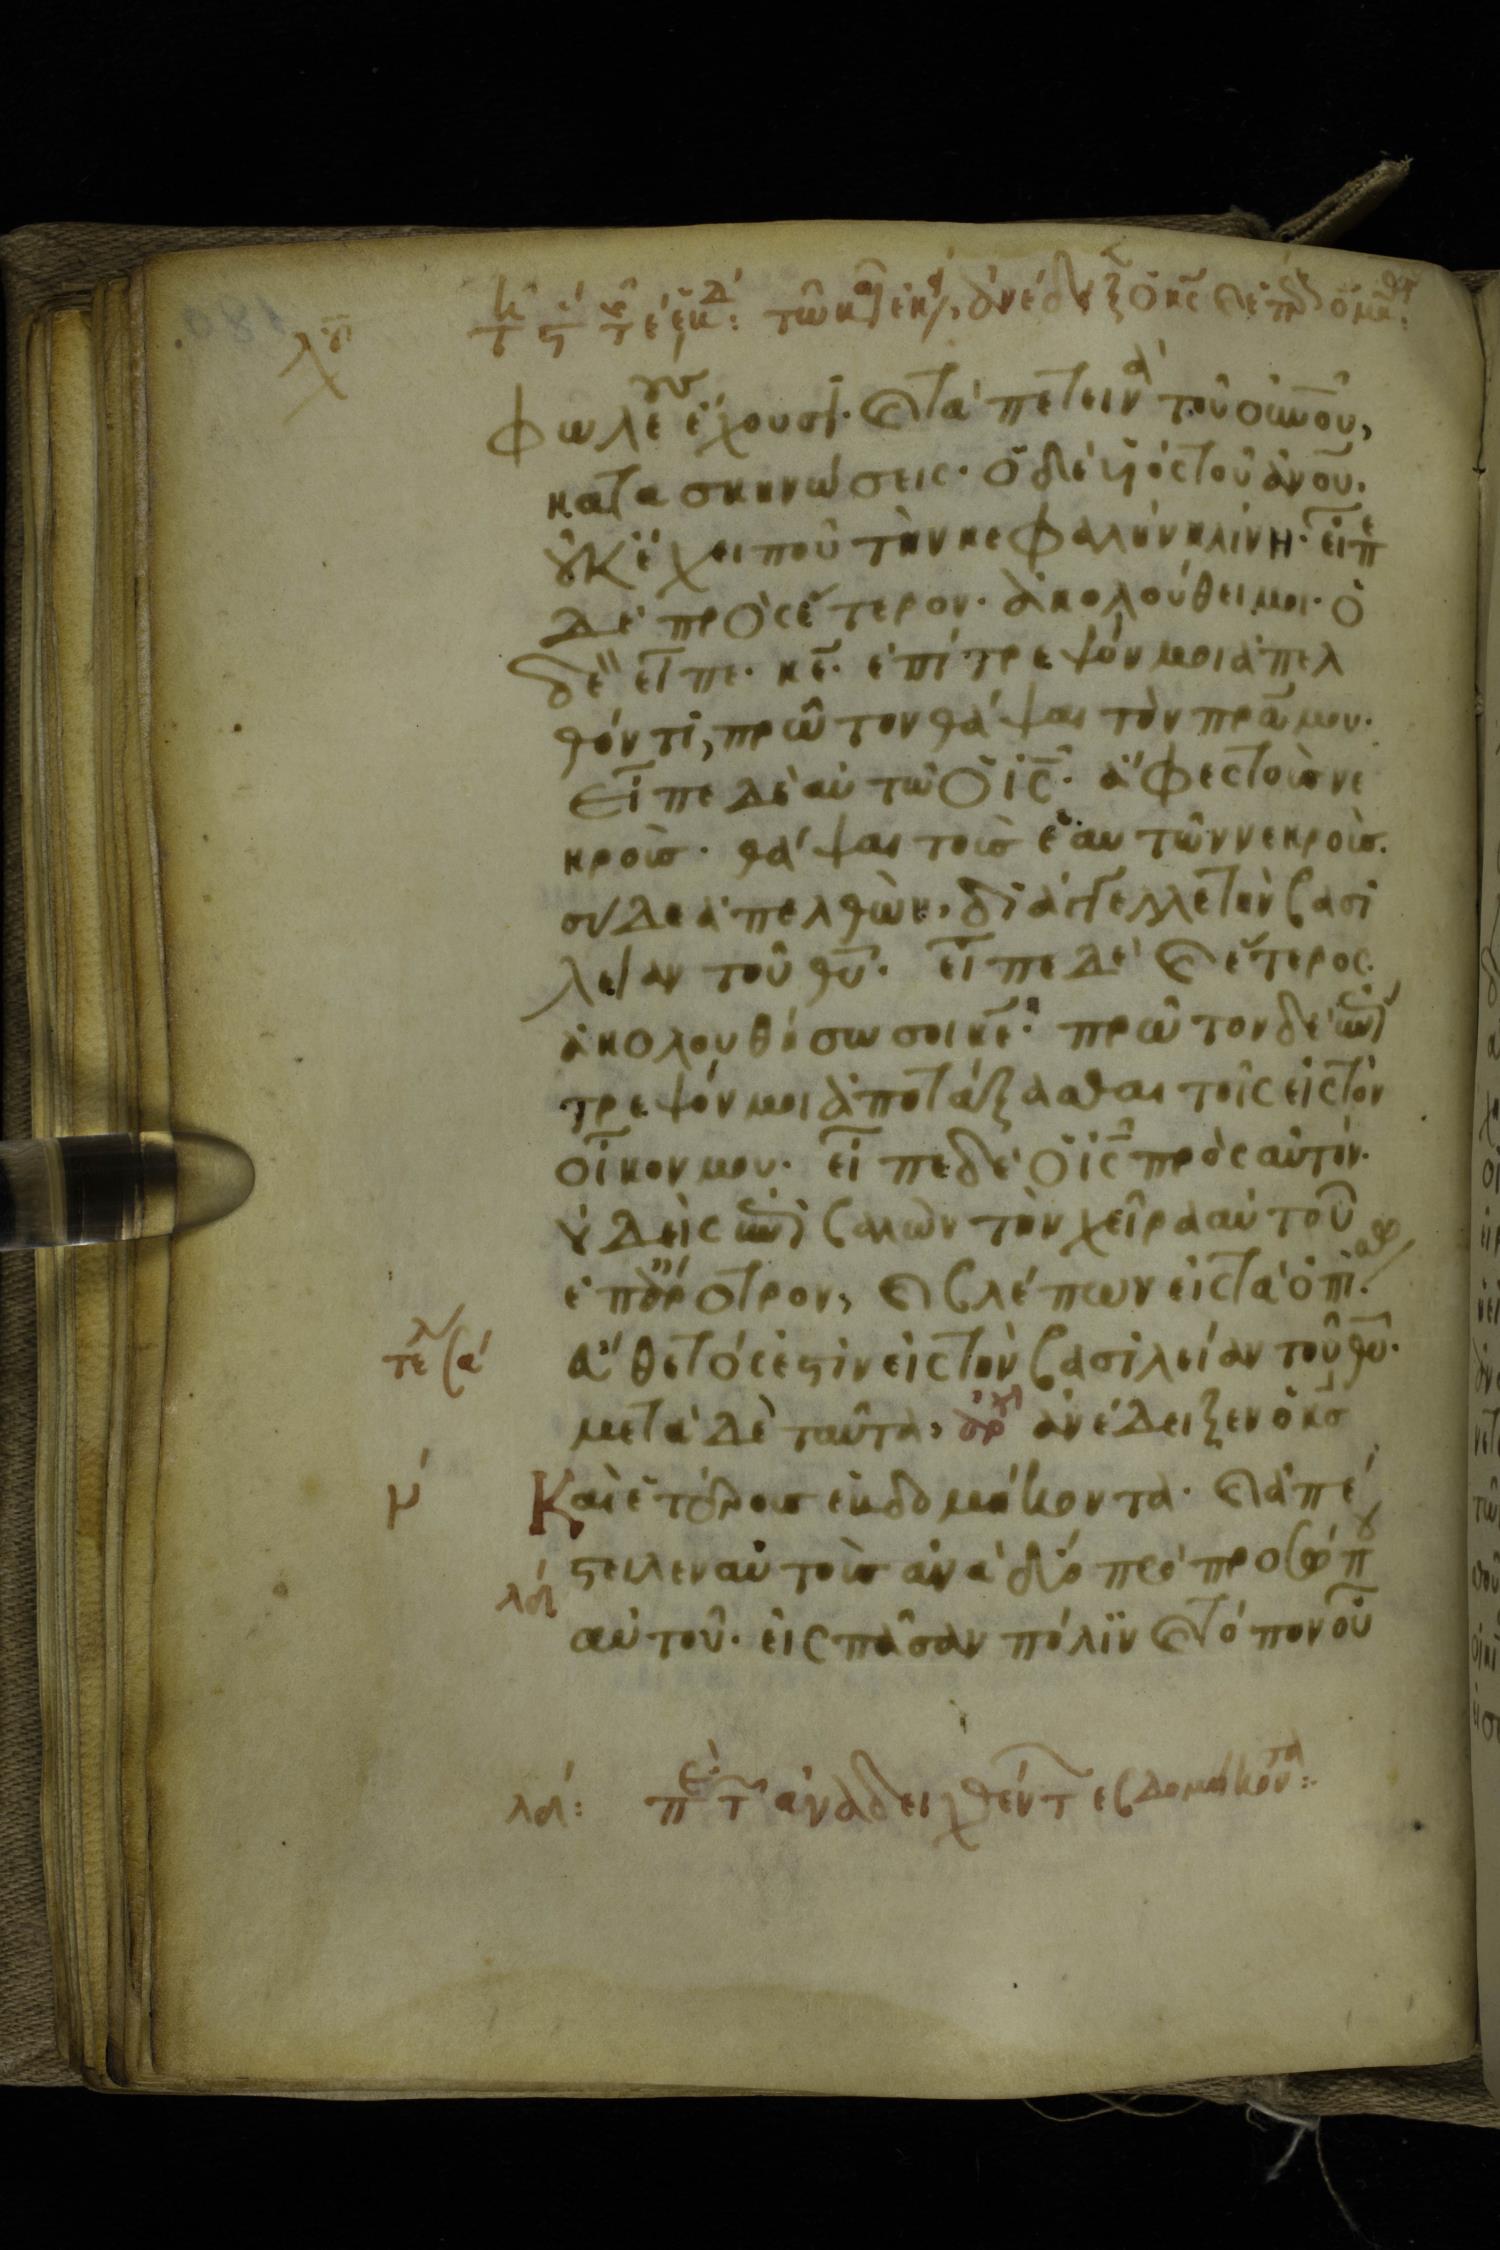 φωλεοὺς ἔχουσϊ· καὶ τὰ πετεινὰ τοῦ οὐνοῦ,
κατασκηνώσεις· ὁ δὲ ὑιὸς τοῦ ἀνου.
οὐκ ἔχει ποῦ τὴν κεφαλὴν κλίνη· εἶπε
δὲ πρὸς ἕτερον· ἀκολούθει μοι· ὁ
δὲ εἶπε· κε· ἐπίτρεψόν μοι ἀπελ
θόντι, πρῶτον θάψαι τὸν πρα μου.
εἶπε δὲ αὐτῶ ὁ ις· ἄφες τοὺς νε
κροὺς· θάψαι τοὺς ἑαυτῶν νεκροὺς.
σὺ δὲ ἀπελθὼν, διάγγελλε τὴν βασι
λείαν τοῦ θυ· εἶπε δὲ καὶ ἕτερος.
ἀκολουθήσω σοι κε· πρῶτον δὲ ἐπί
τρεψόν μοι ἀποτάξασθαι τοῖς εἰς τὸν
οἶκον μου· εἶπε δὲ ὁ ις πρὸς αὐτόν.
οὐδεὶς ἐπιβαλὼν τὴν χεῖρα αὐτοῦ
ἐπ ἄροτρον, καὶ βλέπων εἰς τὰ ὀπί.
εὔθετός ἐστιν εἰς τὴν βασιλείαν τοῦ θυ.
μετὰ δὲ ταῦτα, ἀρχ ἀνέδειξεν ὁ κς
μ Καὶ ἑτέρους ἑβδομήκοντα· καὶ ἀπέ
στειλεν αὐτοὺς ἀνὰ δύο πρὸ προσώπου
αὐτοῦ· εἰς πᾶσαν πόλϊν καὶ τόπον οὗ
π τ ἀναδειχθέντ ἑβδομήκοντα: